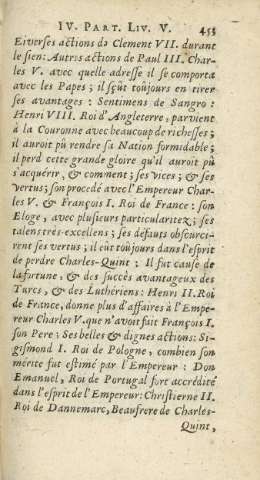 IV. PART. LIV. V. 453
Eiverses actions de Clement VII. durant
le sien: Autres actions de Paul III. Char-
les V. avec quelle adresse il se comporta
avec les Papes ; il sçût toûjours en tirer
ses avantages : Sentimens de Sangro :
Henri VIII. Roi d'Angleterre, parvient
à la Couronne avec beaucoup de richesses ;
il auroit pû rendre sa Nation formidable ;
il perd cette grande gloire qu'il auroit pû
s'acquérir, & comment ; ses vices ; & ses
vertus; son procedé avec l'Empereur Char-
les V. & François I. Roi de France : son
Eloge, avec plusieurs particularitez ; ses
talens très-excellens ; ses défauts obscurci-
rent ses vertus ; il eût toûjours dans l'esprit
de perdre Charles-Quint : Il fut cause de
la fortune, & des succès avantageux des
Turcs, & des Luthériens : Henri II. Roi
de France, donne plus d'affaires à l'Empe-
reur Charles V. que n'avoit fait François I.
son Pere ; Ses belles & dignes actions: Si-
gismond I. Roi de Pologne, combien son
mérite fut estimé par l'Empereur : Don
Emanuel, Roi de Portugal fort accrédité
dans l'esprit de l'Empereur: Christierne II.
Roi de Dannemarc, Beaufrere de Charles-
Quint,